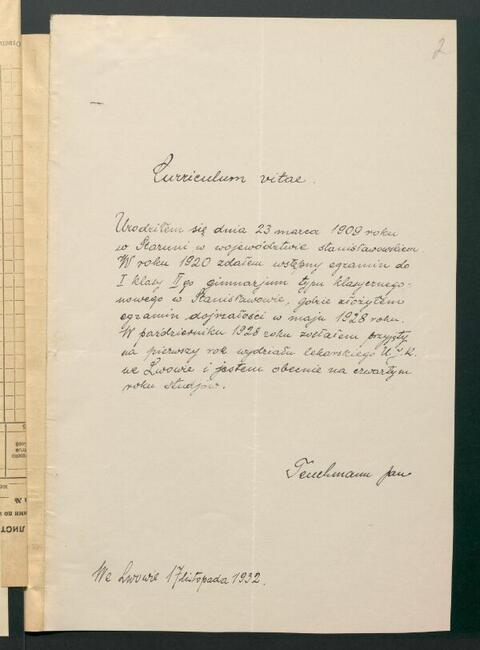 2
Curriculum vitae.
Urodziłem się dnia 23 marca 1909 roku
w Staruni w województwie stanisławowskiem
W roku 1920 zdałem wstępny egzamin do
I klasy II go gimnazjum typu klasycznego-
nowego w Stanisławowie, gdzie złożyłem
egzamin dojrzałości w maju 1928 roku.
W październiku 1928 roku zostałem przyjęty
na pierwszy rok wydziału lekarskiego U.J.K.
we Lwowie i jestem obecnie na czwartym
roku studjów.
Teuchmann Jan
We Lwowie 17 listopada 1932.
ЛИСТ